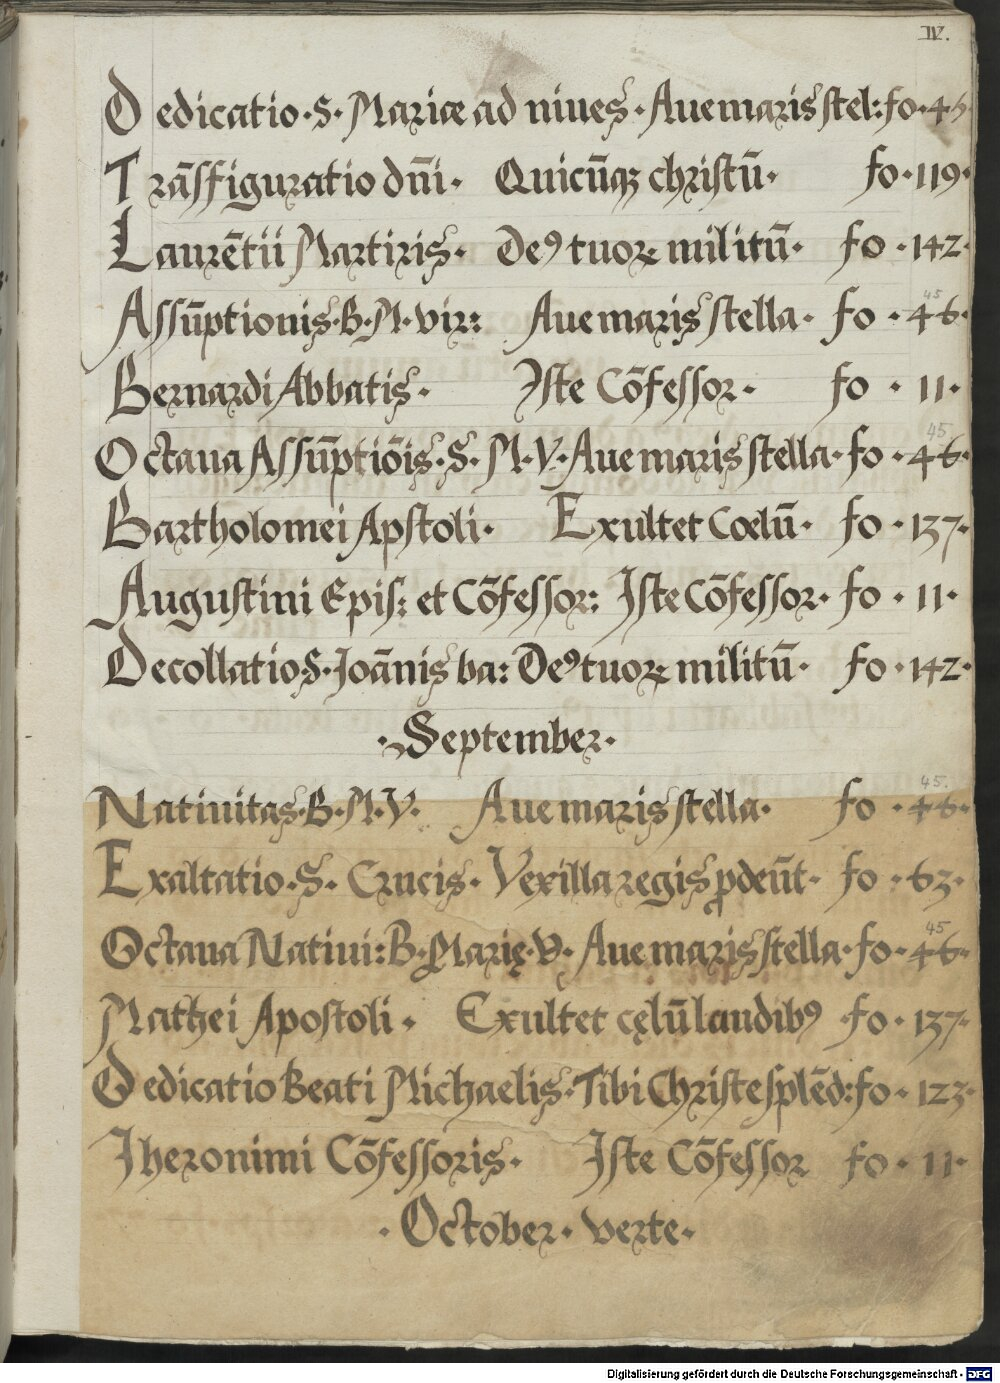 IV.
Dedicatio·S·Mariæ ad niues·Aue maris stel: fo·46
Trāsfiguratio dn̄i· Quicūqꝫ christū· fo·119·
Laurētii Martiris· Deꝰ tuoꝝ militū· fo·142·
Assūptionis·B·M·vir: Aue maris stella· fo·46· 45
Bernardi Abbatis· Iste Cōfessor· fo·11·
Octaua Assūptiōis·S·M·V·Aue maris stella·fo·46· 45
Bartholomei Apstoli· Exultet Cœlū· fo·137·
Augustini Epis: et Cōfessor: Iste Cōfessor· fo·11·
Decollatio S·Joānis ba: Deꝰ tuoꝝ militū· fo·142·
·September·
Natiuitas·B·M·V· Aue maris stella· fo·46· 45·
Exaltatio·S·Crucis· Vexilla regis ꝓdeūt· fo·63·
Octaua Natiui: B·Marię·V·Aue maris stella·fo·46· 45
Mathei Apostoli· Exultet cęlū laudibꝰ ·fo·137·
Dedicatio Beati Michaelis·Tibi Christe splēd: fo·123·
Iheronimi Cōfessoris· Iste Cōfessor fo·11·
·October·verte·
Digitalisierung gefördert durch die Deutsche Forschungsgemeinschaft - DFG